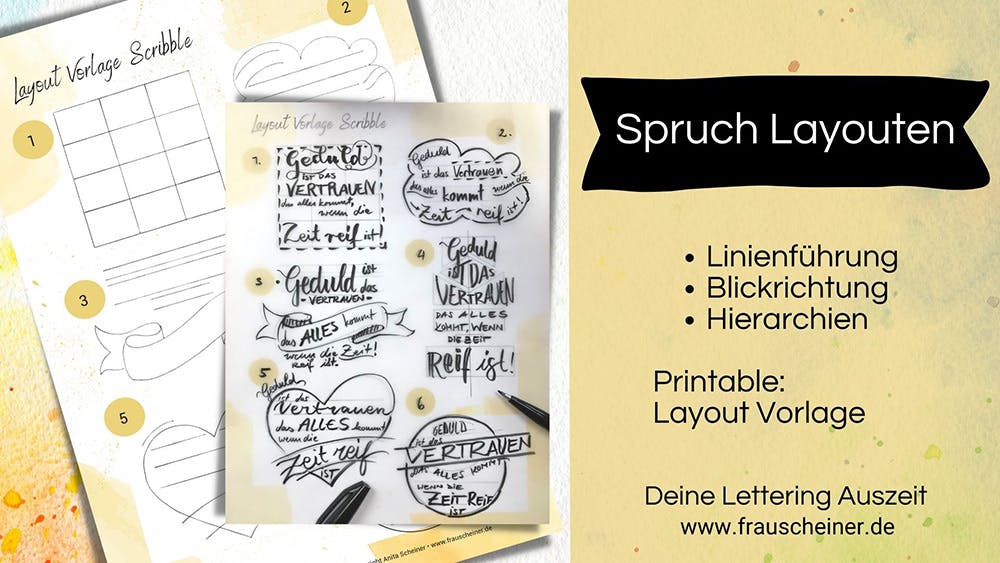 2
Layout Vorlage Scribble
1
3
5
Layout Vorlage Scribble
1.
Geduld
IST DAS
VERTRAUEN
das alles kommt,
wenn die
Zeit reif ist!
2.
Geduld
ist das Vertrauen
das alles kommt wenn die
Zeit reif ist!
3
Geduld ist
das
- VERTRAUEN -
das ALLES kommt
wenn die Zeit!
reif ist.
4
Geduld
iST DAS
VERTRAUEN
DAS ALLES
KOMMT, WENN
DIE ZEIT
Reif ist!
5
Geduld
ist das
Vertrauen
das ALLES kommt
wenn die
Zeit reif
IST
6
GEDULD
ist das
VERTRAUEN
DAS ALLES KOMMT
WENN DIE
ZEIT REIF
IST
Anita Scheiner • www.frauscheiner.de
Spruch Layouten
• Linienführung
• Blickrichtung
• Hierarchien
Printable:
Layout Vorlage
Deine Lettering Auszeit
www.frauscheiner.de